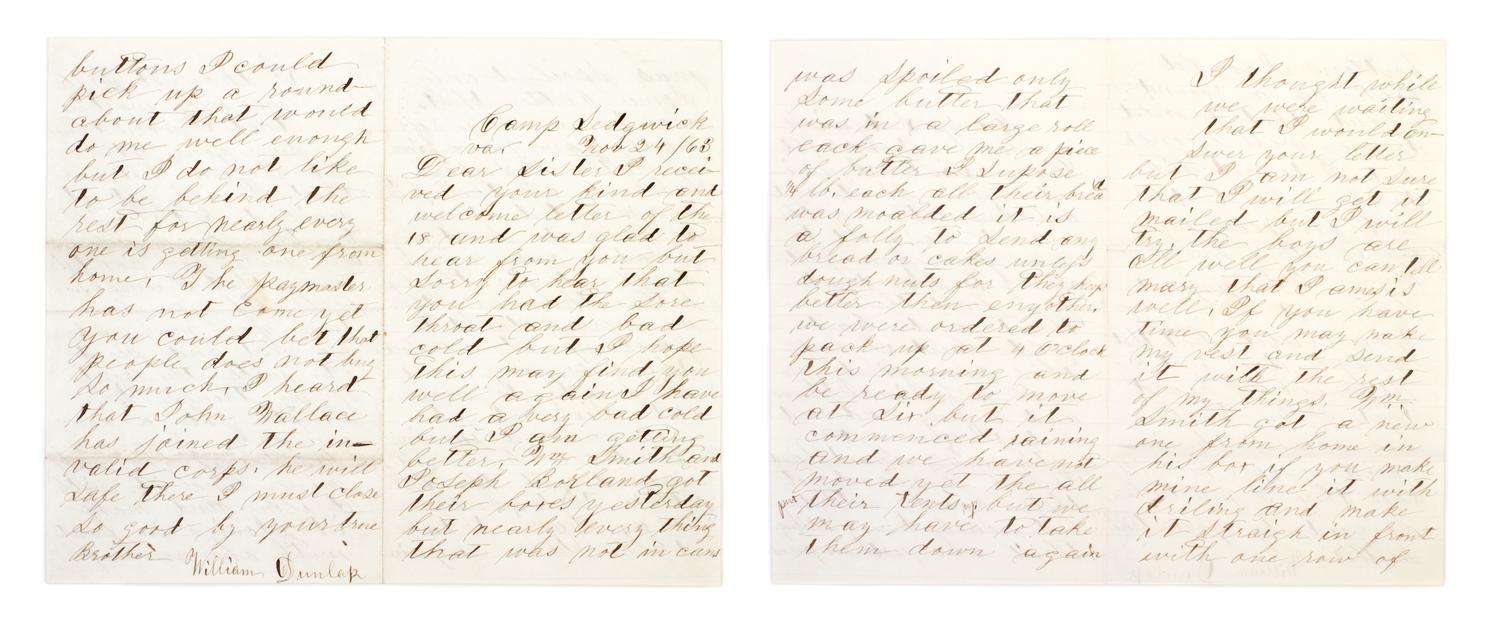 Camp Sedgwick
va. Nov 24 /63
Dear Sister I recei-
ved your kind and
welcome letter of the
18 and was glad to
hear from you but
sorry to hear that
you had the sore
throat and bad
cold but I hope
this may find you
well again I have
had a very bad cold
but I am getting
better, Wm Smith and
Joseph Borland got
their boxes yesterday
but nearly every thing
that was not in cans
was spoiled only
some butter that
was in a large roll
each gave me a piece
of butter I supose
lb. each all their bread
was moalded it is
a folly to send any
bread or cakes unless
doughnuts for they keep
better then enyother.
we were ordered to
pack up at 4 O'clock
this morning and
be ready to move
at Six but it
commenced raining
and we have not
moved yet the all
put their tents up but we
may have to take
them down again
I thought while
we were waiting
that I would an-
swer your letter
but I am not sure
that I will get it
mailed but I will
try. the boys are
all well you can tell
mary that I ames is
well. If you have
time you may make
my vest and send
it with the rest
of my things. Wm.
Smith got a new
one from home in
his box if you make
mine line it with
driling and make
it straigh in front
with one row of
buttons I could
pick up a round
about that would
do me well enough
but I do not like
to be behind the
rest for nearly every
one is getting one from
home, The paymaster
has not come yet
you could bet that
people does not buy
so much, I heard
that John Wallace
has joined the in-
valid corps. he will
safe there I must close
so good by your true
Brother
William Dunlap